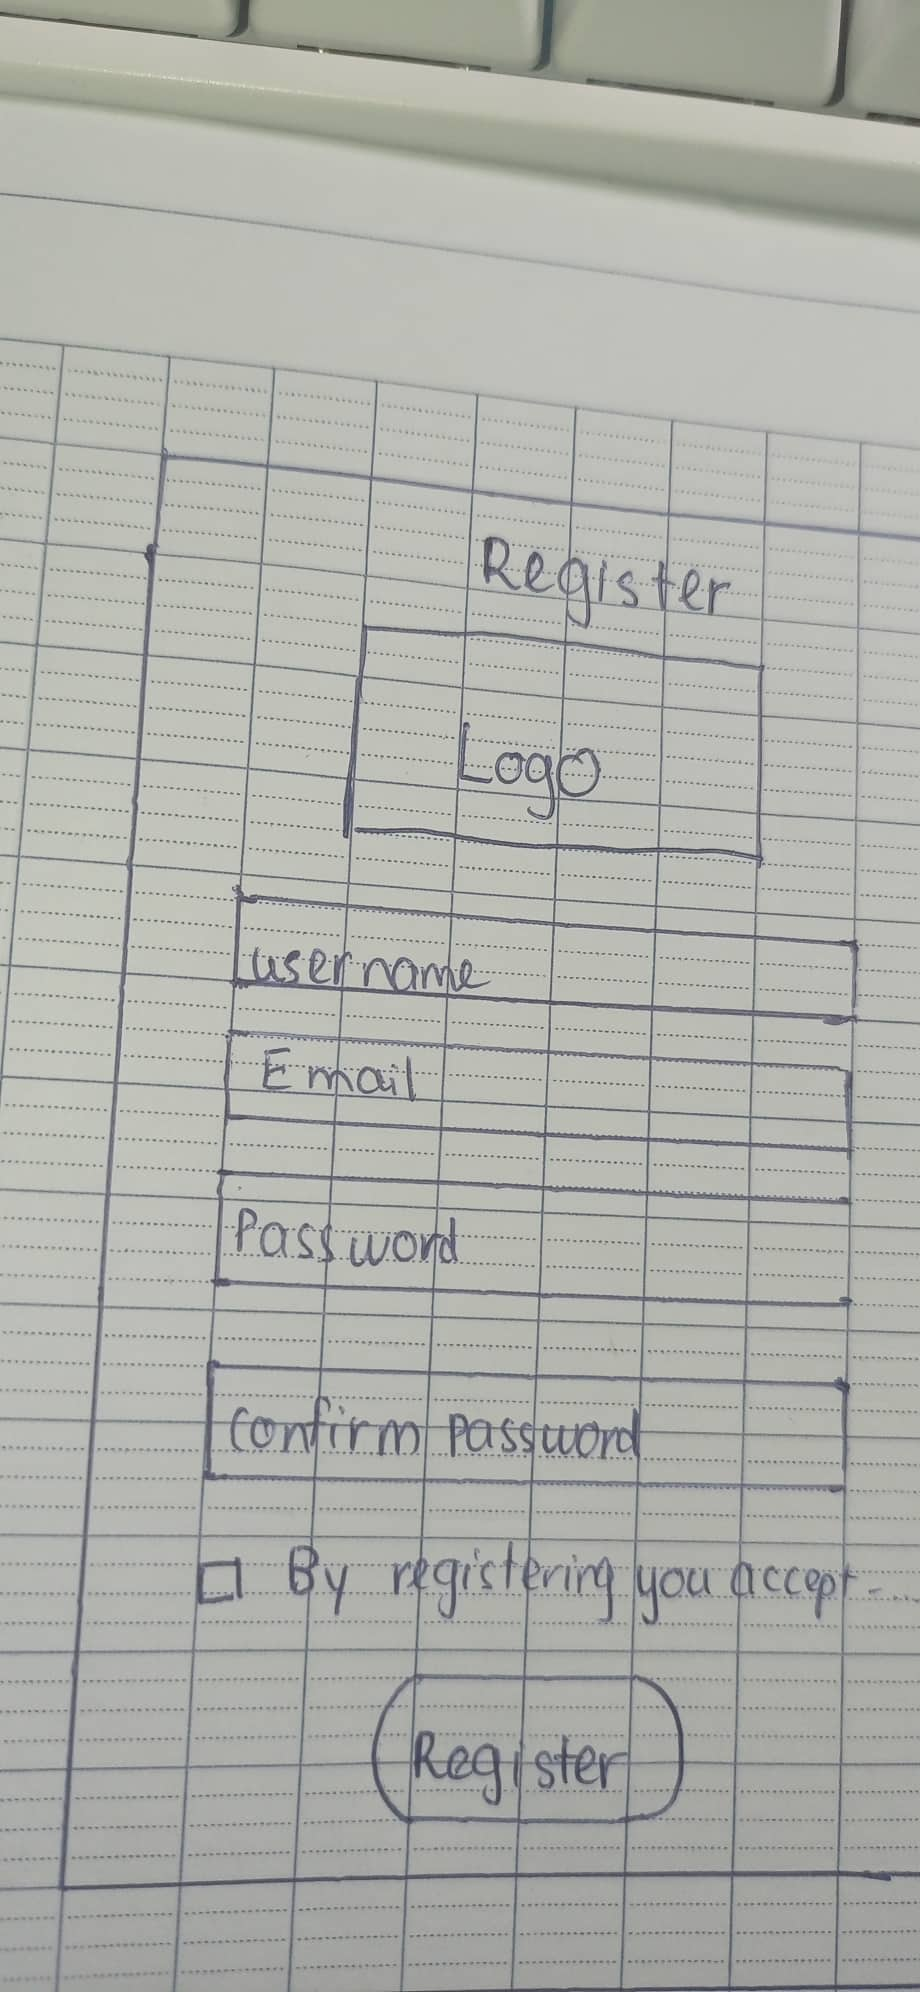 Register
Logo
username
Email
Password
Confirm password
By registering you accept-...
Register